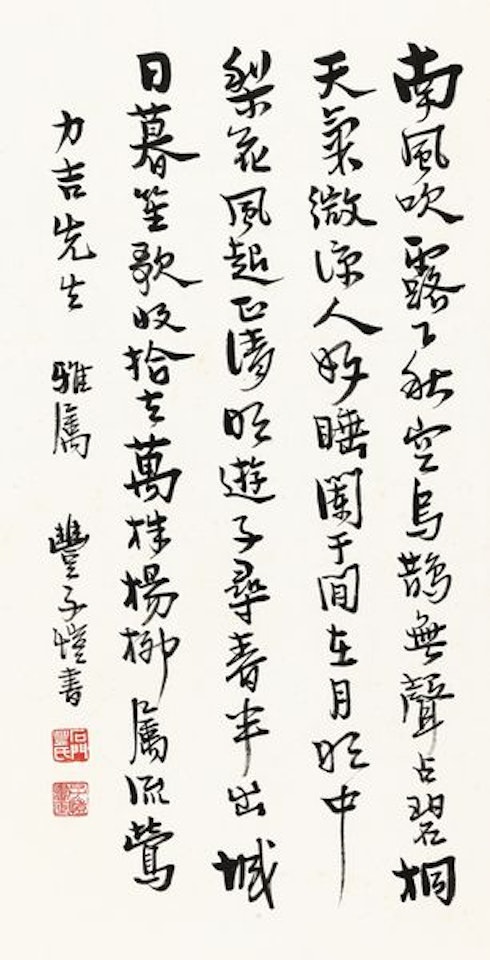 南風吹露下秋空烏鵲無聲占碧桐
天氣微涼人好睡闌干閒在月明中
梨花風起正清明遊子尋春半出城
日暮笙歌收拾去萬株楊柳屬流鶯
力吉先生 雅屬 豐子愷書
石門豐氏